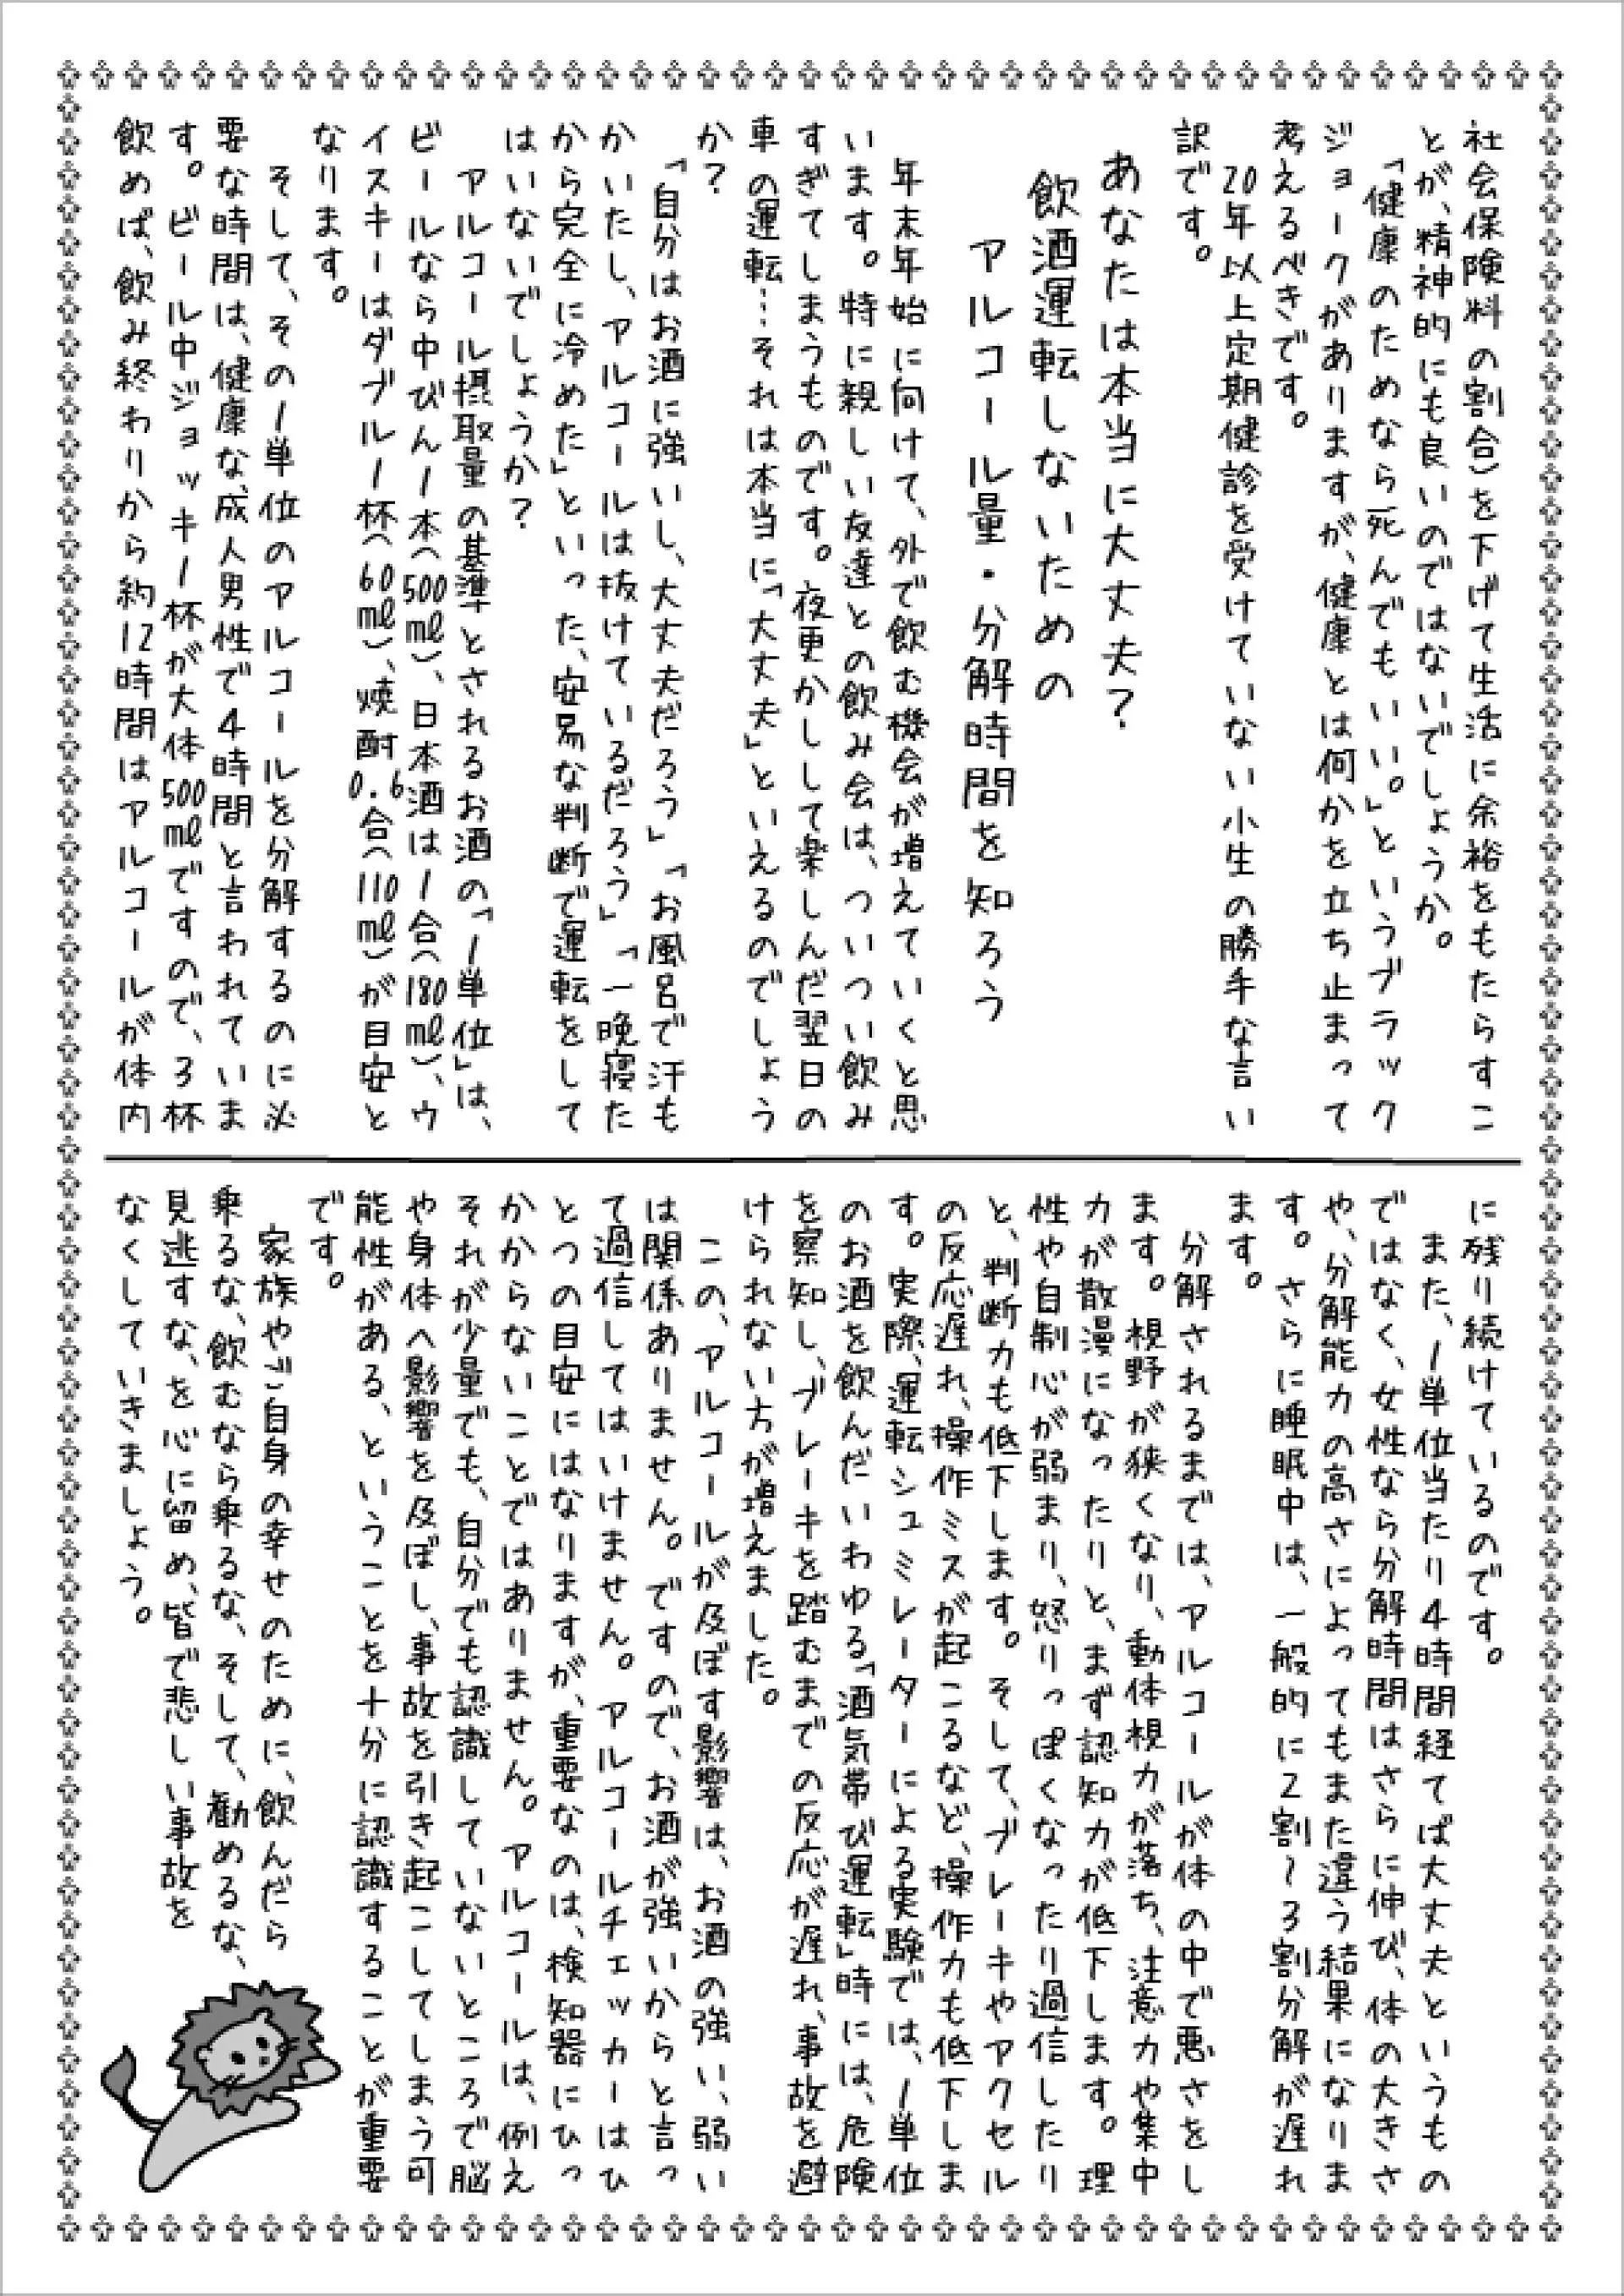 社会保険料の割合）を下げて生活に余裕をもたらすこ
とが、精神的にも良いのではないでしょうか。
「健康のためなら死んでもいい。」というブラック
ジョークがありますが、健康とは何かを立ち止まって
考えるべきです。
20年以上定期健診を受けていない小生の勝手な言い
訳です。
あなたは本当に大丈夫？
飲酒運転しないための
アルコール量・分解時間を知ろう
年末年始に向けて、外で飲む機会が増えていくと思
います。特に親しい友達との飲み会は、ついつい飲み
すぎてしまうものです。夜更かしして楽しんだ翌日の
車の運転…それは本当に「大丈夫」といえるのでしょう
か？
「自分はお酒に強いし、大丈夫だろう」「お風呂で汗も
かいたし、アルコールは抜けているだろう」「一晩寝た
から完全に冷めた」といった、安易な判断で運転をして
はいないでしょうか？
アルコール摂取量の基準とされるお酒の「1単位」は、
ビールなら中びん1本（500ml）、日本酒は1合（180ml）、ウ
イスキーはダブル1杯（60ml）、焼酎0.6合（110ml）が目安と
なります。
そして、その1単位のアルコールを分解するのに必
要な時間は、健康な、成人男性で4時間と言われていま
す。ビール中ジョッキ1杯が大体500mlですので、3杯
飲めば、飲み終わりから約12時間はアルコールが体内
に残り続けているのです。
また、1単位当たり4時間経てば大丈夫というもの
ではなく、女性なら分解時間はさらに伸び、体の大きさ
や、分解能力の高さによってもまた違う結果になりま
す。さらに睡眠中は、一般的に2割～3割分解が遅れ
ます。
分解されるまでは、アルコールが体の中で悪さをし
ます。視野が狭くなり、動体視力が落ち、注意力や集中
力が散漫になったりと、まず認知力が低下します。理
性や自制心が弱まり、怒りっぽくなったり過信したり
と、判断力も低下します。そして、ブレーキやアクセル
の反応遅れ、操作ミスが起こるなど、操作力も低下しま
す。実際、運転シュミレーターによる実験では、1単位
のお酒を飲んだいわゆる「酒気帯び運転」時には、危険
を察知し、ブレーキを踏むまでの反応が遅れ、事故を避
けられない方が増えました。
この、アルコールが及ぼす影響は、お酒の強い、弱い
は関係ありません。ですので、お酒が強いからと言っ
て過信してはいけません。アルコールチェッカーはひ
とつの目安にはなりますが、重要なのは、検知器にひっ
かからないことではありません。アルコールは、例え
それが少量でも、自分でも認識していないところで脳
や身体へ影響を及ぼし、事故を引き起こしてしまう可
能性がある、ということを十分に認識することが重要
です。
家族やご自身の幸せのために、飲んだら
乗るな、飲むなら乗るな、そして、勧めるな、
見逃すな、を心に留め、皆で悲しい事故を
なくしていきましょう。